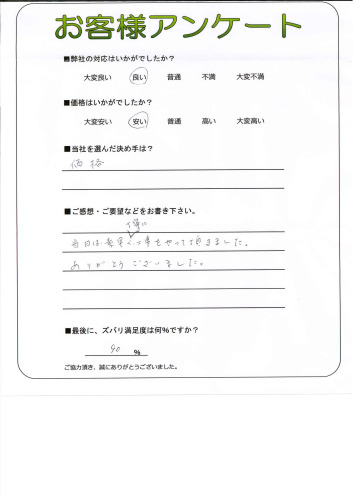 お客様アンケート
■弊社の対応はいかがでしたか？
大変良い 良い 普通 不満 大変不満
■価格はいかがでしたか？
大変安い 安い 普通 高い 大変高い
■当社を選んだ決め手は？
価格
■ご感想・ご要望などをお書き下さい。
丁寧に
当日は手早く仕事をやって頂きました。
ありがとうございました。
■最後に、ズバリ満足度は何％ですか？
90 %
ご協力頂き、誠にありがとうございました。